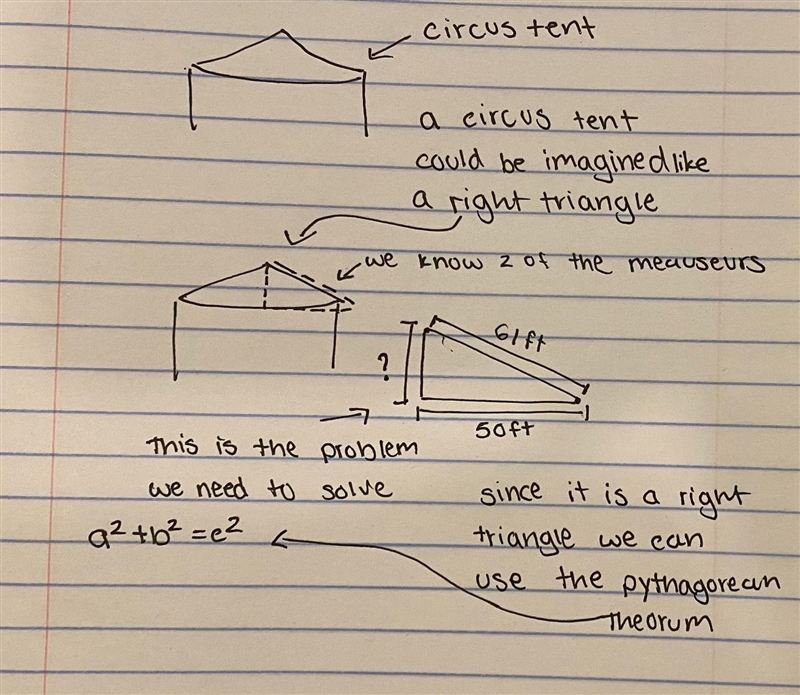 circus tent
a circus tent
could be imagined like
a right triangle
we know 2 of the meauseurs
61ft
?
50ft
This is the problem
we need to solve
since it is a right
triangle we can
use the pythagorean
theorum
a² + b² = c²